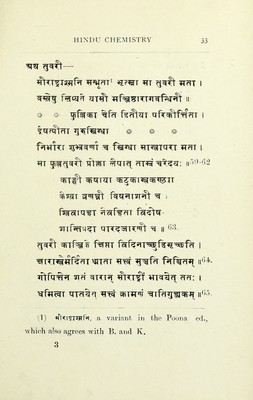 HINDU CHEMISTRY 33
अथ तुवरी—
सौराष्ट्राश्मनि सम्भूता¹ मृत्स्ना सा तुवरी मता ।
वस्त्रेषु लिप्यते यासौ मञ्जिष्ठारागबन्धिनी ॥
० ० फुल्लिका चेति द्वितीया परिकीर्त्तिता ।
ईषत्पीता गुरुस्निग्धा ० ० ०
निर्भारा शुभ्रवर्णा च स्निग्धा साम्लापरा मता ।
सा फुल्लतुवरी प्रोक्ता लेपात् ताम्रं चरेदयः ॥ 59-62
काङ्क्षी कषाया कटुकाम्लकण्ठ्या
केश्या व्रणघ्नी विषनाशनी च ।
श्वित्रापहा नेत्रहिता त्रिदोष-
शान्तिप्रदा पारदजारणी च ॥ 63.
तुवरी काञ्जिके क्षिप्ता त्रिदिनाच्छुद्धिमृच्छति ।
क्षाराम्लैर्मर्दिता ध्माता सत्त्वं मुञ्चति निश्चितम् ॥ 64.
गोपित्तेन शतं वारान् सौराष्ट्रीं भावयेत् ततः ।
धमित्वा पातयेत् सत्त्वं क्रामणं चातिगुह्यकम् ॥ 65.
(1) सौराष्ट्राश्मनि, a variant in the Poona ed.,
which also agrees with B. and K.
3